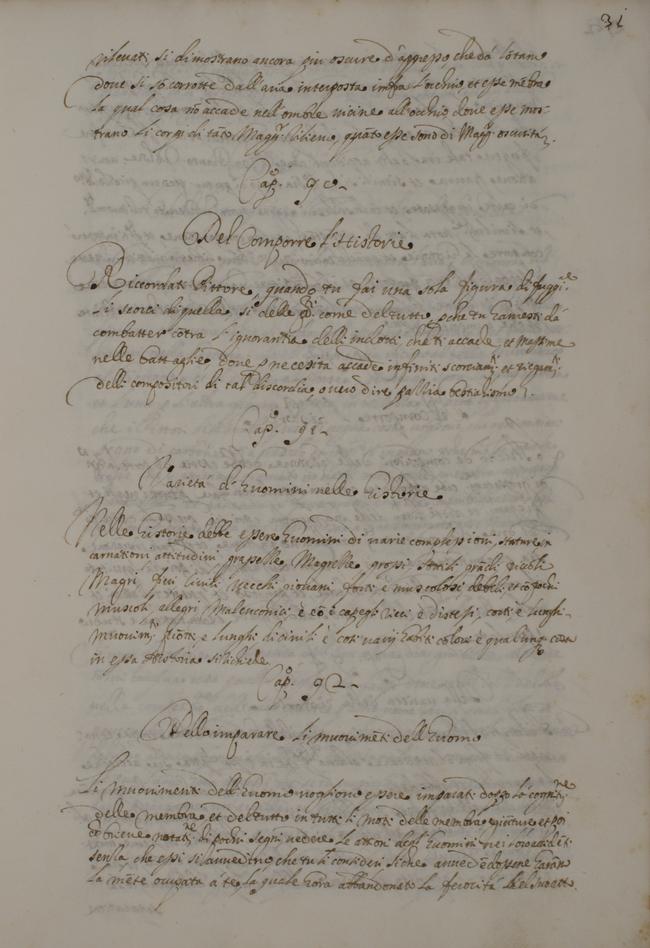 31
rilevati, si dimostrano ancora piu oscure d'appresso che da lontano
dove si sō corrotte dall'aria interposta infra l'occhio, et esse mēbra
la qual cosa nō accade nell'ombre vicine all'occhio, dove esse mos-
trano li corpi di tāto Magr. rilievo, quāto esse sono di Magr. oscurità.
Cap.o 90.
Del Comporre l'Historie
Riccordati Pittore, quando tu fai una sola figura di fuggire
li scorci di quella, sì delle pti come del tutto, pche tu haveresti dà
combatter cōtra l'ignorantia delli indotti che ti accade, et Massime
nelle battaglie dove p necesita accade infiniti scorciamti et piegamti
delli compositori di tal discordia, o vuo dire pazzia bestialissima.
Cap.o 91.
Varietà d'huomini nelle historie
Nelle historie debbe essere huomini di varie complessioni, stature, in
carnationi attitudini grasselle, Magrelle, grossi, sottili grādi picoli
Magri, fieri civili vecchi giovani, forti è muscolosi deboli et cō pochi
muscoli, allegri Maleuconici, è cō i capegli ricci è distesi, corti è lunghi
muovimti prōti, e lunghi, di civili è così varij habiti colori è qualunq cosa
in essa historia si richiede
Cap.o 92.
Dello imparare li muovimēti dell'huomo
Li muovimenti dell'huomo vogliono essere imparati doppo la cognitne
delle membra et del tutto in tutti li moti delle membra è giūture et poi
cō breve notatne di pochi segni vedere le attioni degl'huomini nei loro accidēti
senza che essi si avvedino, che tu li consideri
la mēte occupata a te, la quale havrà abbandonato la ferocità del suo atto